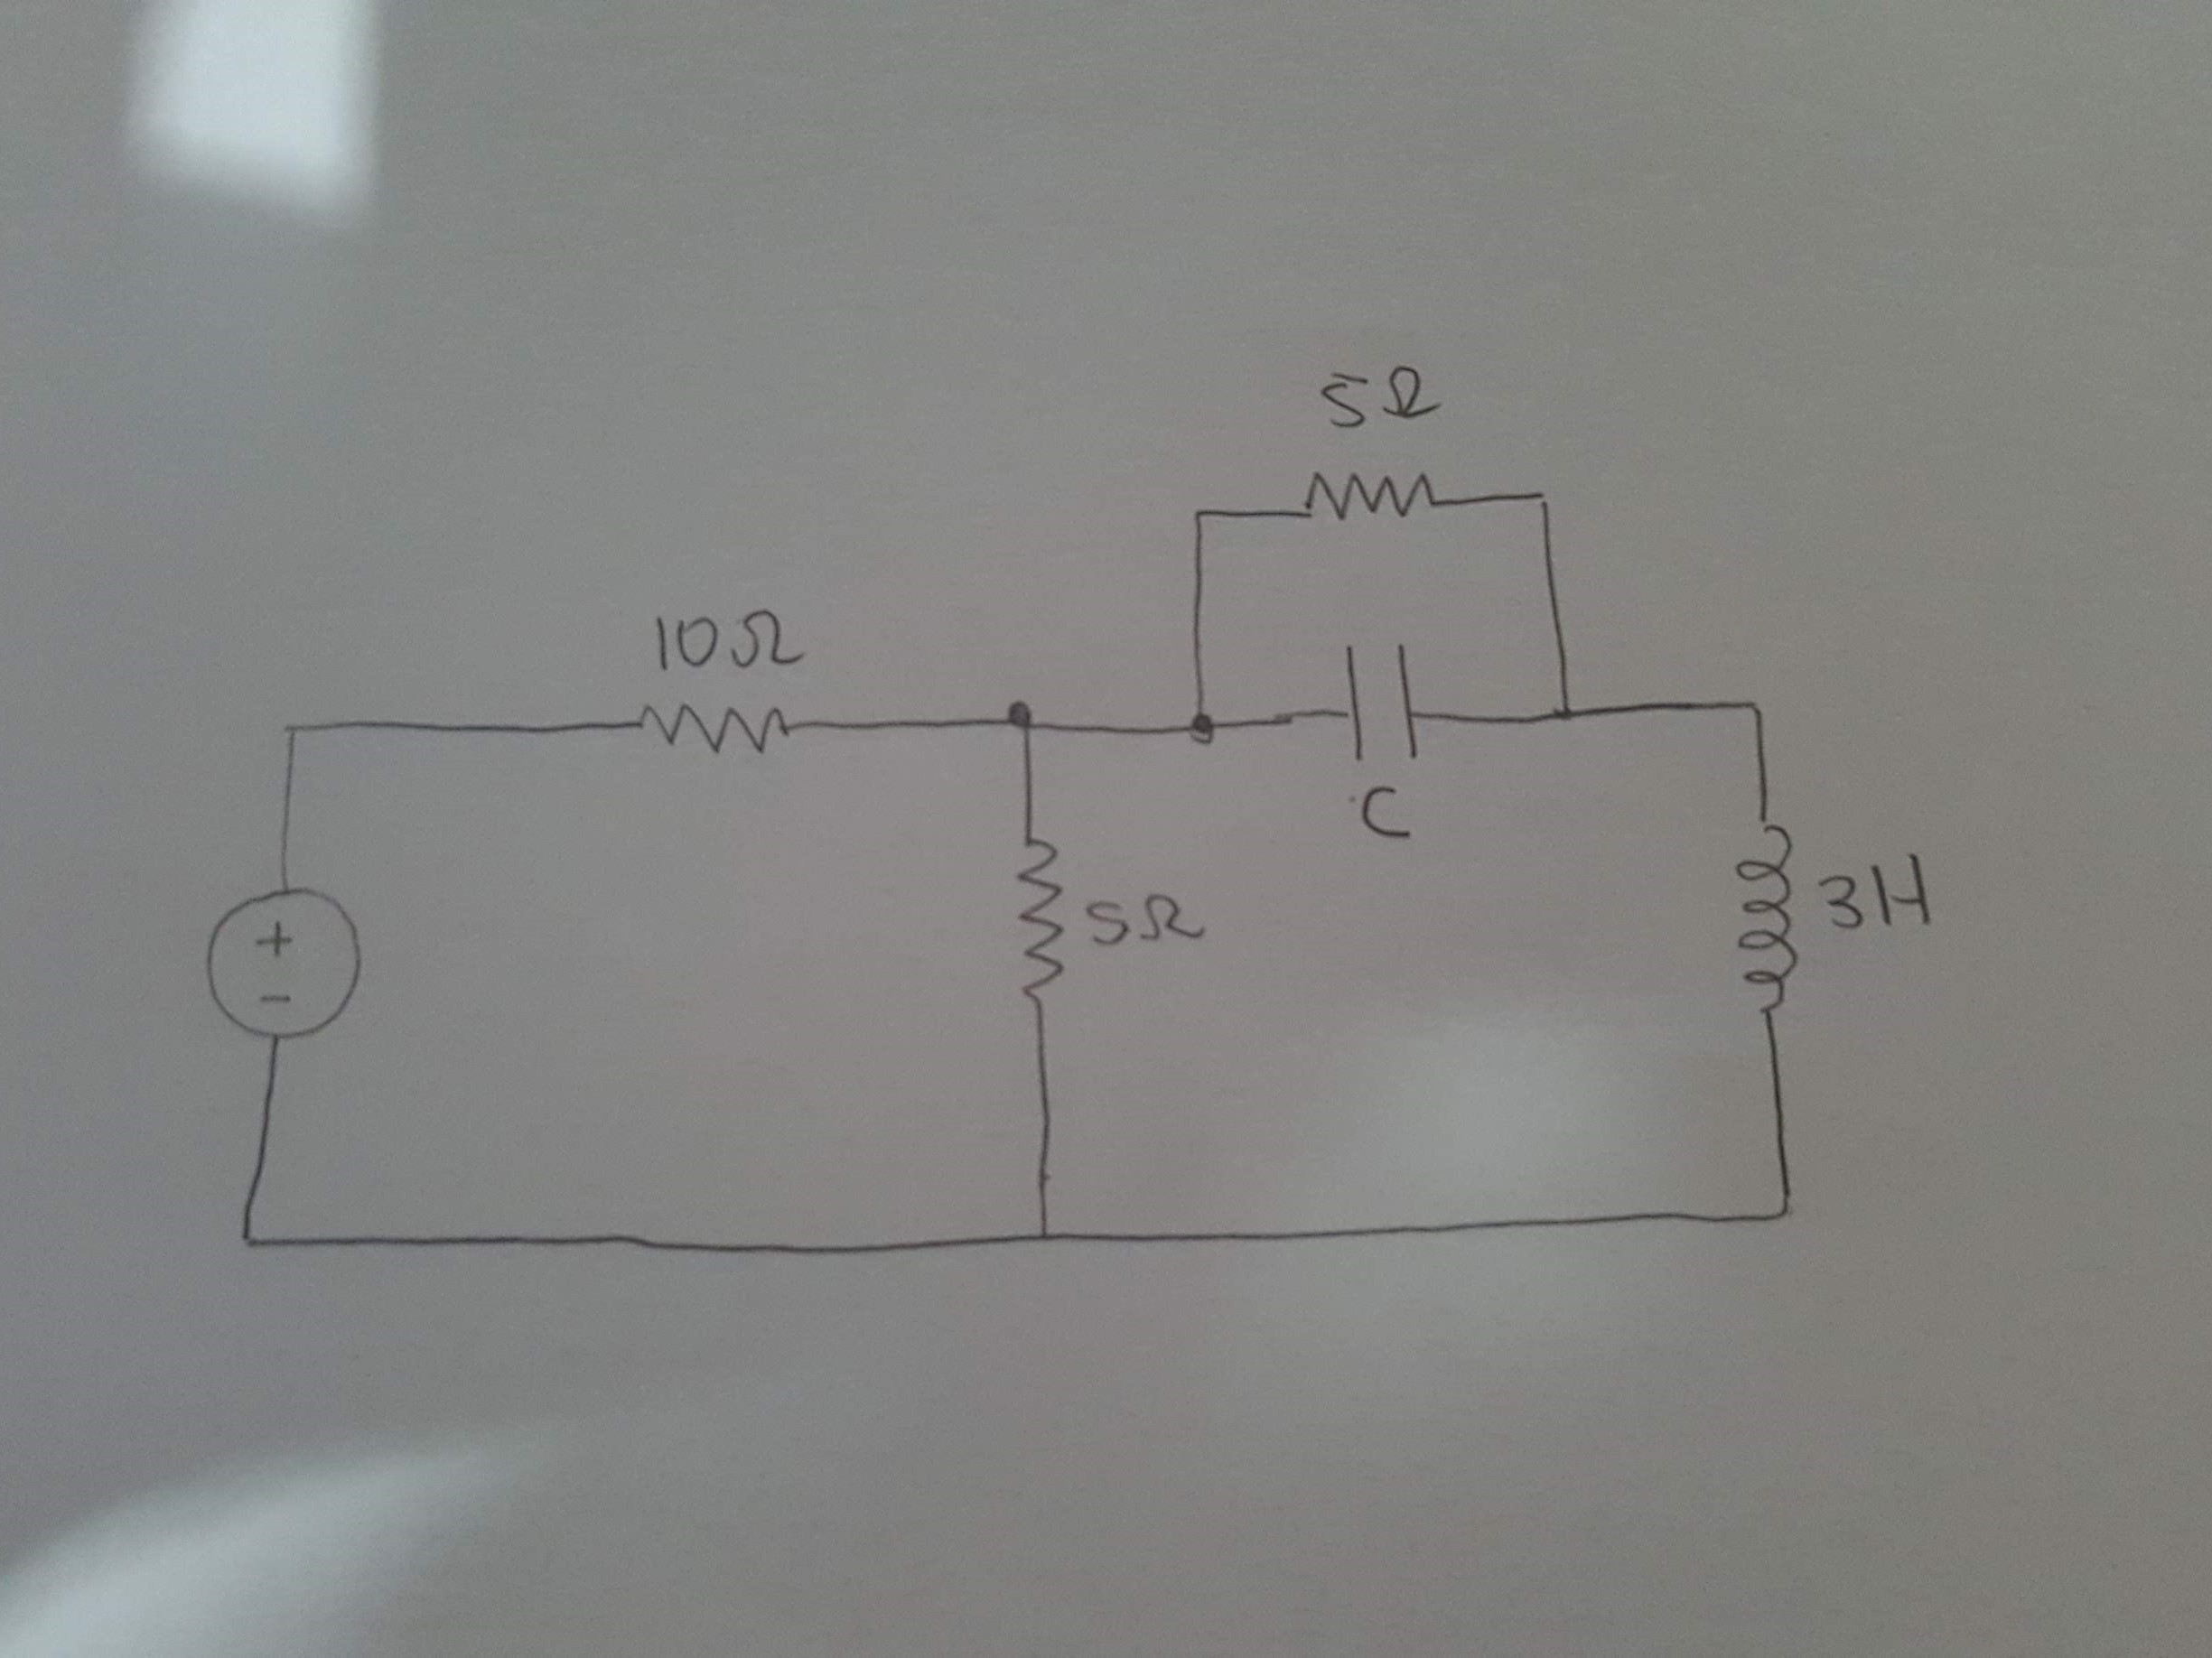 5Ω
10Ω
C
5Ω
3H
+
-